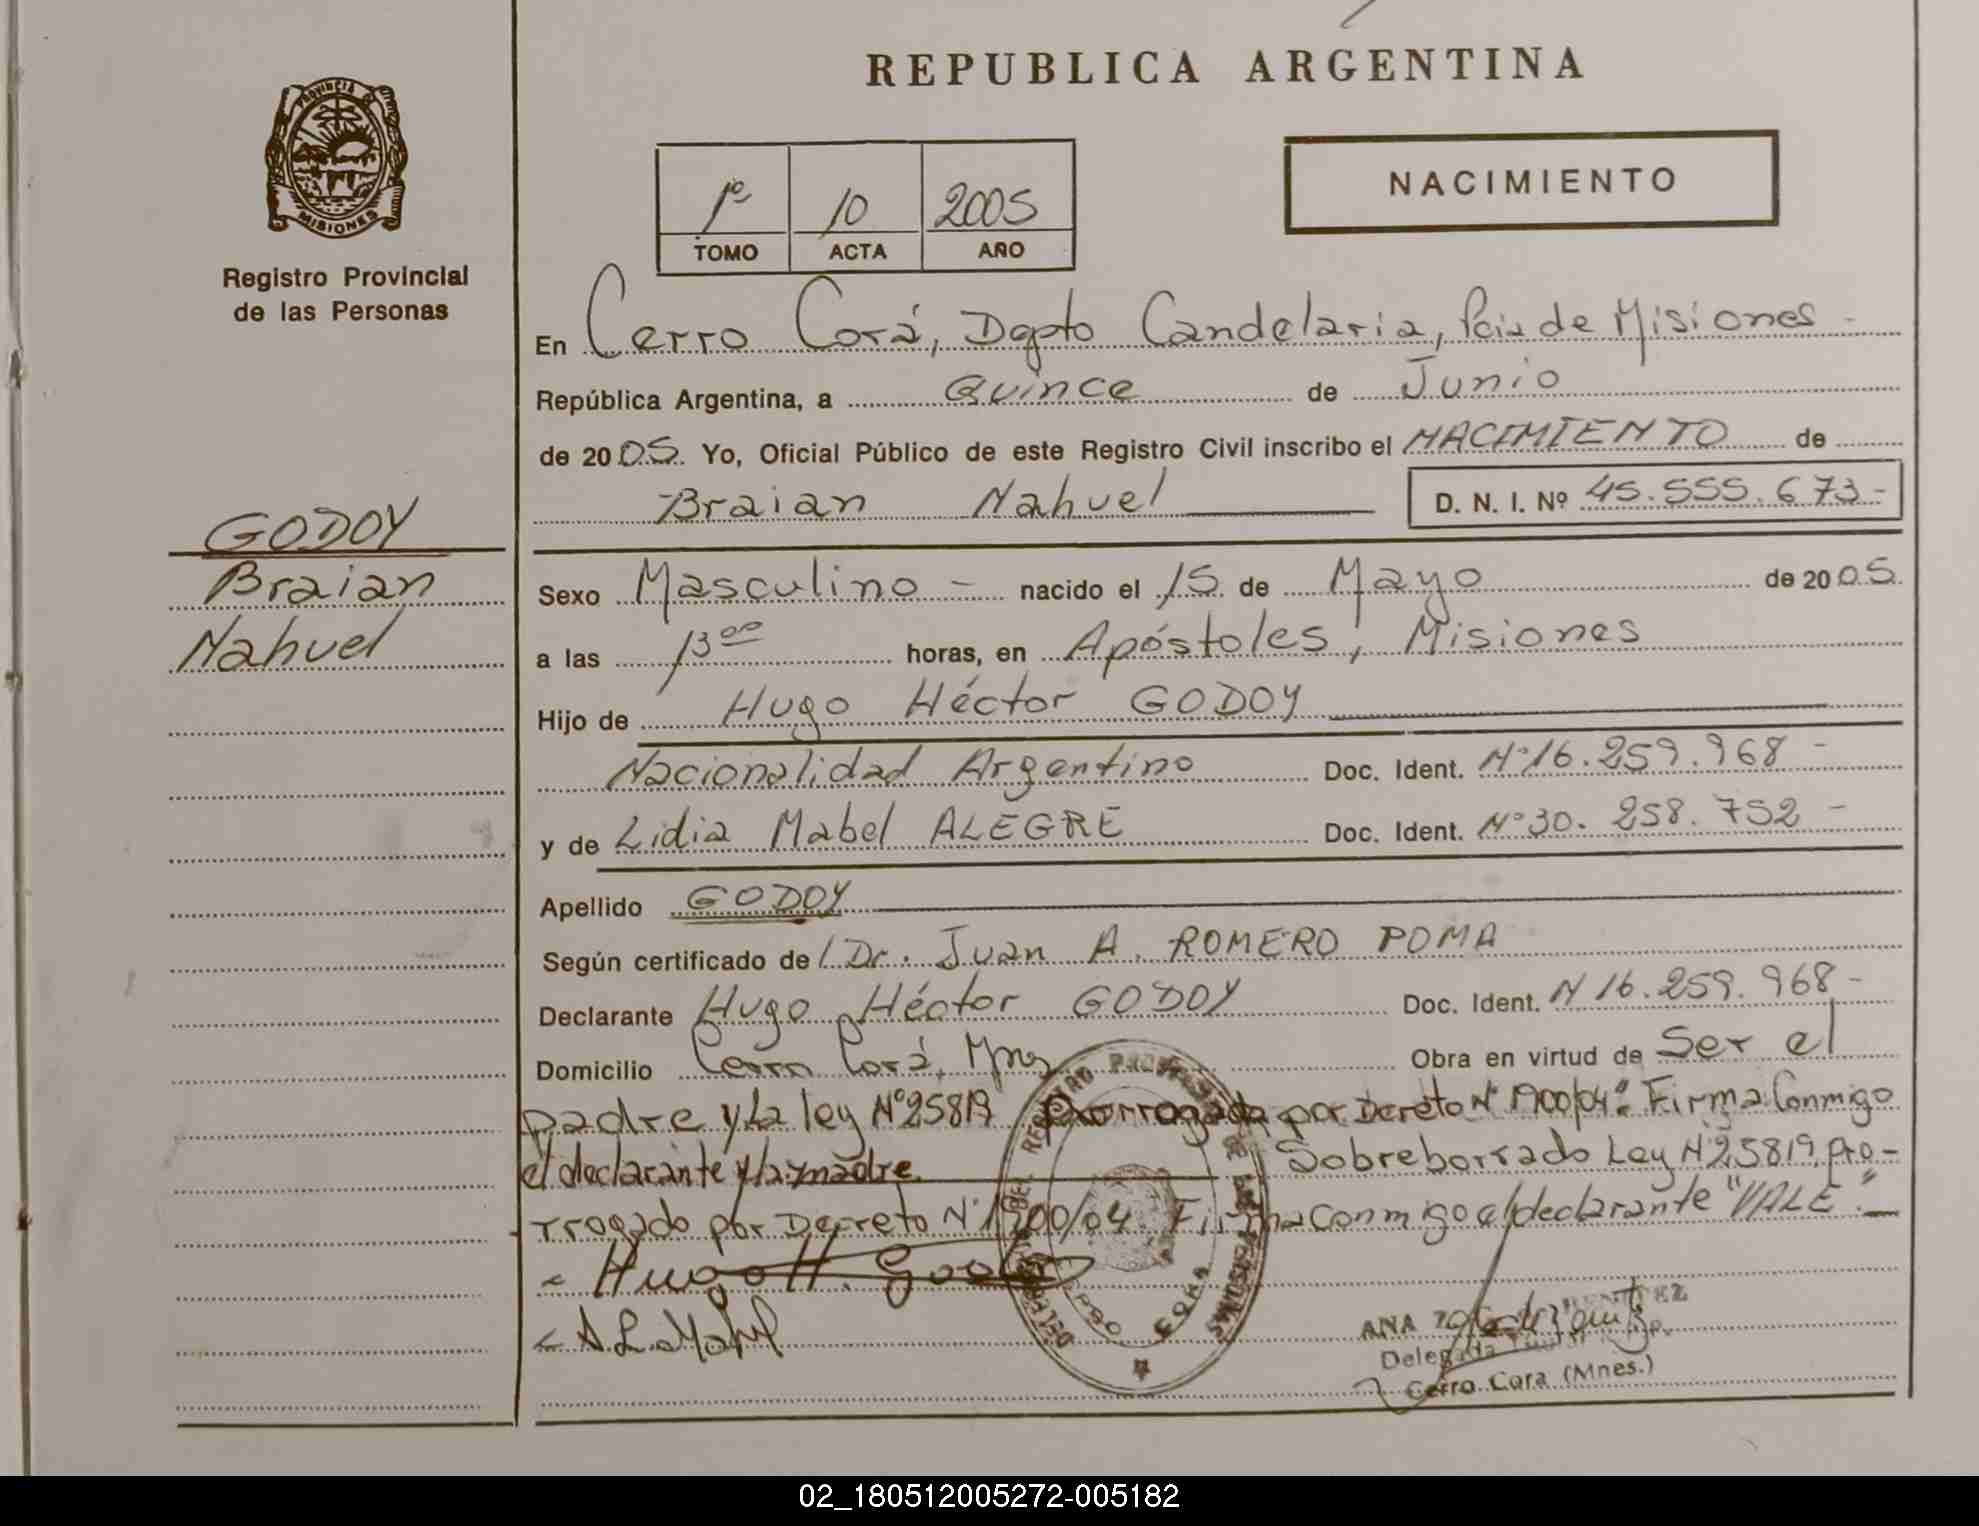 REPUBLICA ARGENTINA
PROVINCIA DE
MISIONES
Registro Provincial
de las Personas
1º 10 2005
TOMO ACTA AÑO
NACIMIENTO
En Cerro Corá, Dpto Candelaria, Pcia de Misiones -
República Argentina, a Quince de Junio
de 2005. Yo, Oficial Público de este Registro Civil inscribo el NACIMIENTO de
Braian Nahuel D. N. I. Nº 45.555.673-
GODOY
Braian
Nahuel
Sexo Masculino - nacido el 15 de Mayo de 2005.
a las 13 00 horas, en Apóstoles, Misiones
Hijo de Hugo Héctor GODOY
Nacionalidad Argentino Doc. Ident. Nº16.259.968-
y de Lidia Mabel ALEGRE Doc. Ident. Nº30.258.752-
Apellido GODOY
Según certificado de Dr. Juan A. ROMERO POMA
Declarante Hugo Héctor GODOY Doc. Ident. N 16.259.968-
Domicilio Cerro Corá, Mnes Obra en virtud de Ser el
padre y la ley Nº25819 prorrogada por Decreto Nº 1700/04. Firma Conmigo
el declarante y la madre. Sobreborrado Ley Nº25819, pro-
rrogado por Decreto Nº1700/04. Firma conmigo el declarante "VALE".-
Hugo H. Godoy
ANA
Delegada
Cerro Cora (Mnes.)
02_180512005272-005182